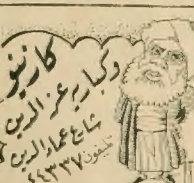 كازينو
وكباريه عز الدين
شارع عماد الدين
تليفون ٤٤٣٣٧